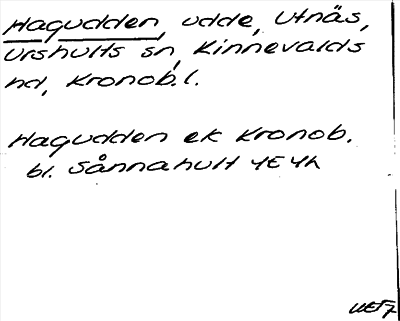 Hagudden, udde, Utnäs,
Urshults sn, Kinnevalds
hd, Kronob.l.
Hagudden ek Kronob.
bl. Sånnahult 4E4h